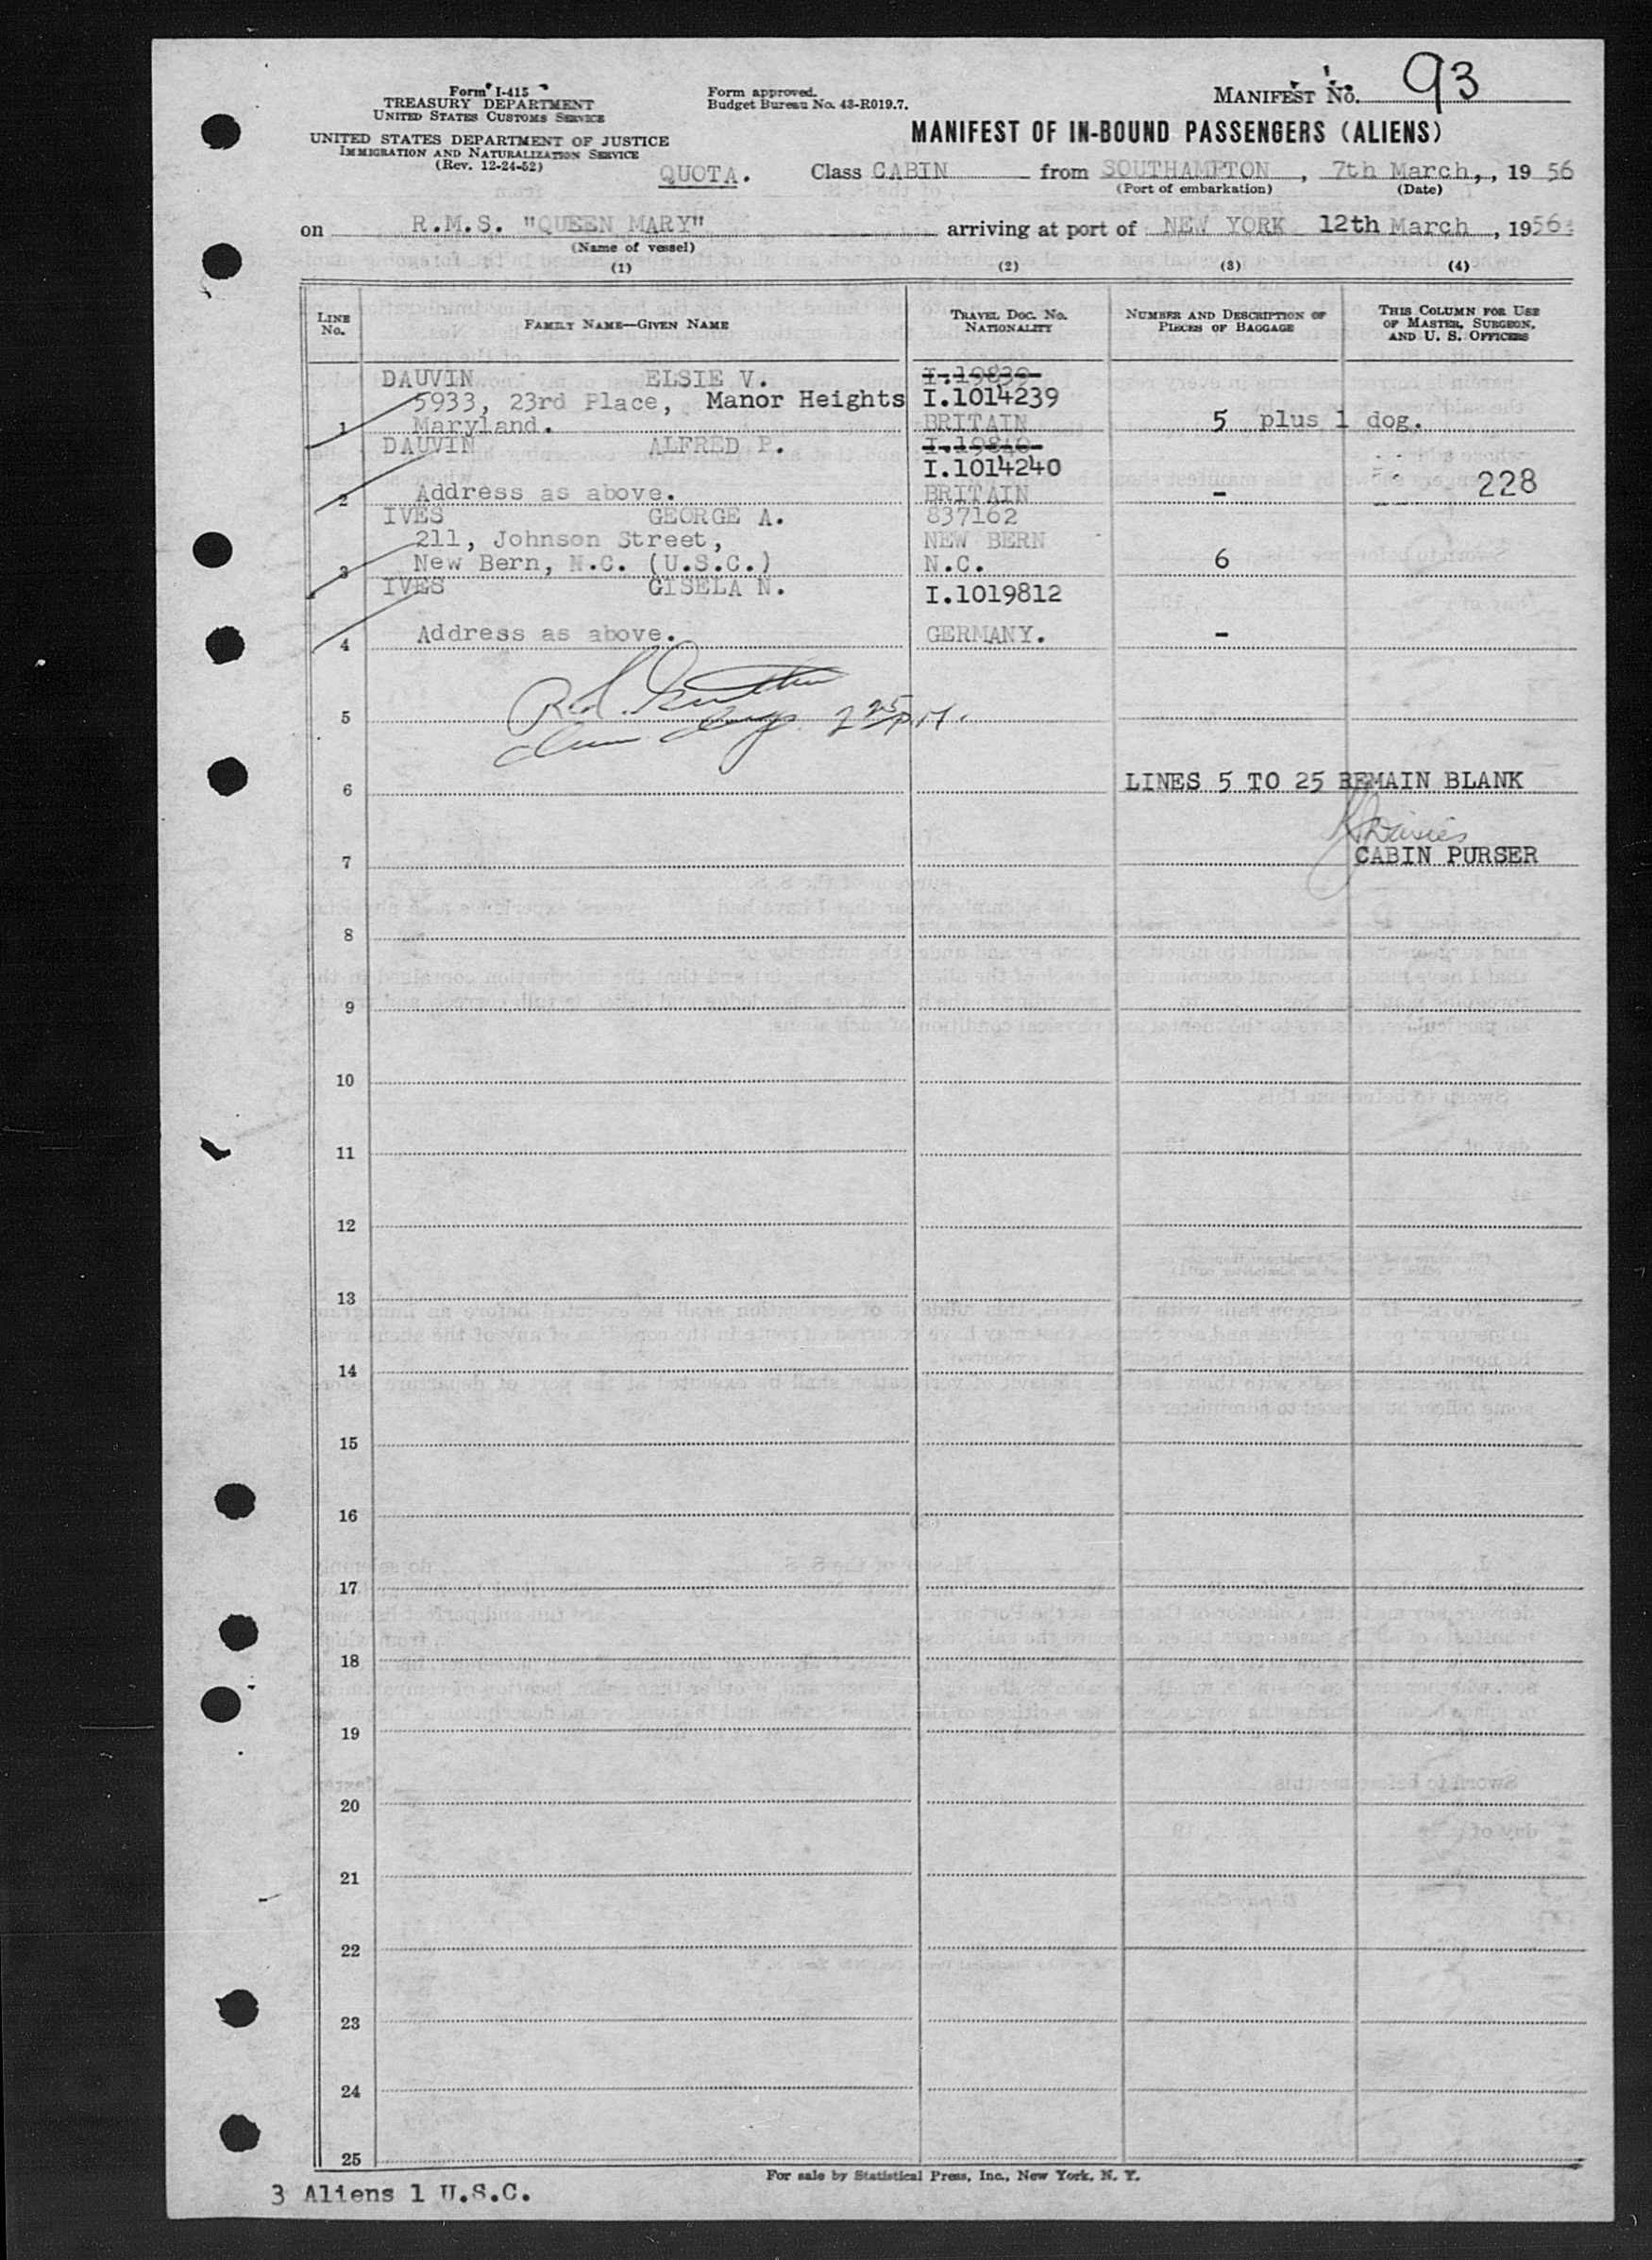 Form I-415
TREASURY DEPARTMENT
UNITED STATES CUSTOMS SERVICE
UNITED STATES DEPARTMENT OF JUSTICE
IMMIGRATION AND NATURALIZATION SERVICE
(Rev. 12-24-52)
Form approved.
Budget Bureau No. 43-R019.7.
MANIFEST NO. 93
MANIFEST OF IN-BOUND PASSENGERS (ALIENS)
QUOTA. Class CABIN from SOUTHAMPTON, 7th March,, 1956
(Port of embarkation) (Date)
on R.M.S. "QUEEN MARY" arriving at port of NEW YORK 12th March, 1956
(Name of vessel)
(1) (2) (3) (4)
LINE No. FAMILY NAME—GIVEN NAME TRAVEL DOC. NO. NATIONALITY NUMBER AND DESCRIPTION OF PIECES OF BAGGAGE THIS COLUMN FOR USE OF MASTER, SURGEON, AND U. S. OFFICERS
DAUVIN ELSIE V. I.19839
5933, 23rd Place, Manor Heights I.1014239
1 Maryland. BRITAIN 5 plus 1 dog.
DAUVIN ALFRED P. I.19840
I.1014240
2 Address as above. BRITAIN - 228
IVES GEORGE A. 837162
211, Johnson Street, NEW BERN
3 New Bern, N.C. (U.S.C.) N.C. 6
IVES GISELA N. I.1019812
4 Address as above. GERMANY. -
5
6 LINES 5 TO 25 REMAIN BLANK
Davies
7 CABIN PURSER
8
9
10
11
12
13
14
15
16
17
18
19
20
21
22
23
24
25
For sale by Statistical Press, Inc., New York, N. Y.
3 Aliens 1 U.S.C.